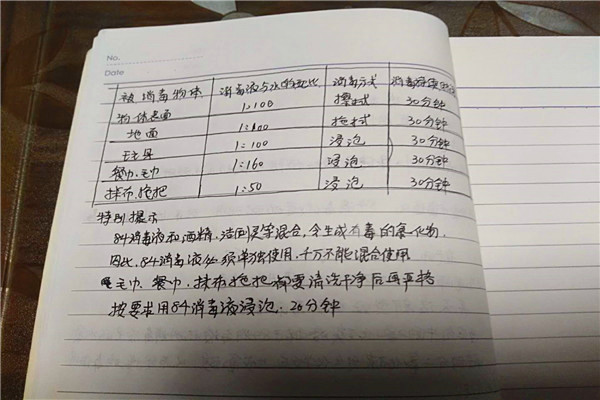 No.
Date
被消毒物体 消毒液与水的配比 消毒方式 消毒
物体表面 1:100 擦拭 30分钟
地面 1:100 拖拭 30分钟
玩具 1:100 浸泡 30分钟
餐巾、毛巾 1:160 浸泡 30分钟
抹布、拖把 1:50 浸泡 30分钟
特别提示
84消毒液和酒精、洁厕灵等混合,会生成有毒的氯化物,
因此,84消毒液必须单独使用,千万不能混合使用
毛巾、餐巾、抹布拖把都要清洗干净后再严格
按要求用84消毒液浸泡.20分钟